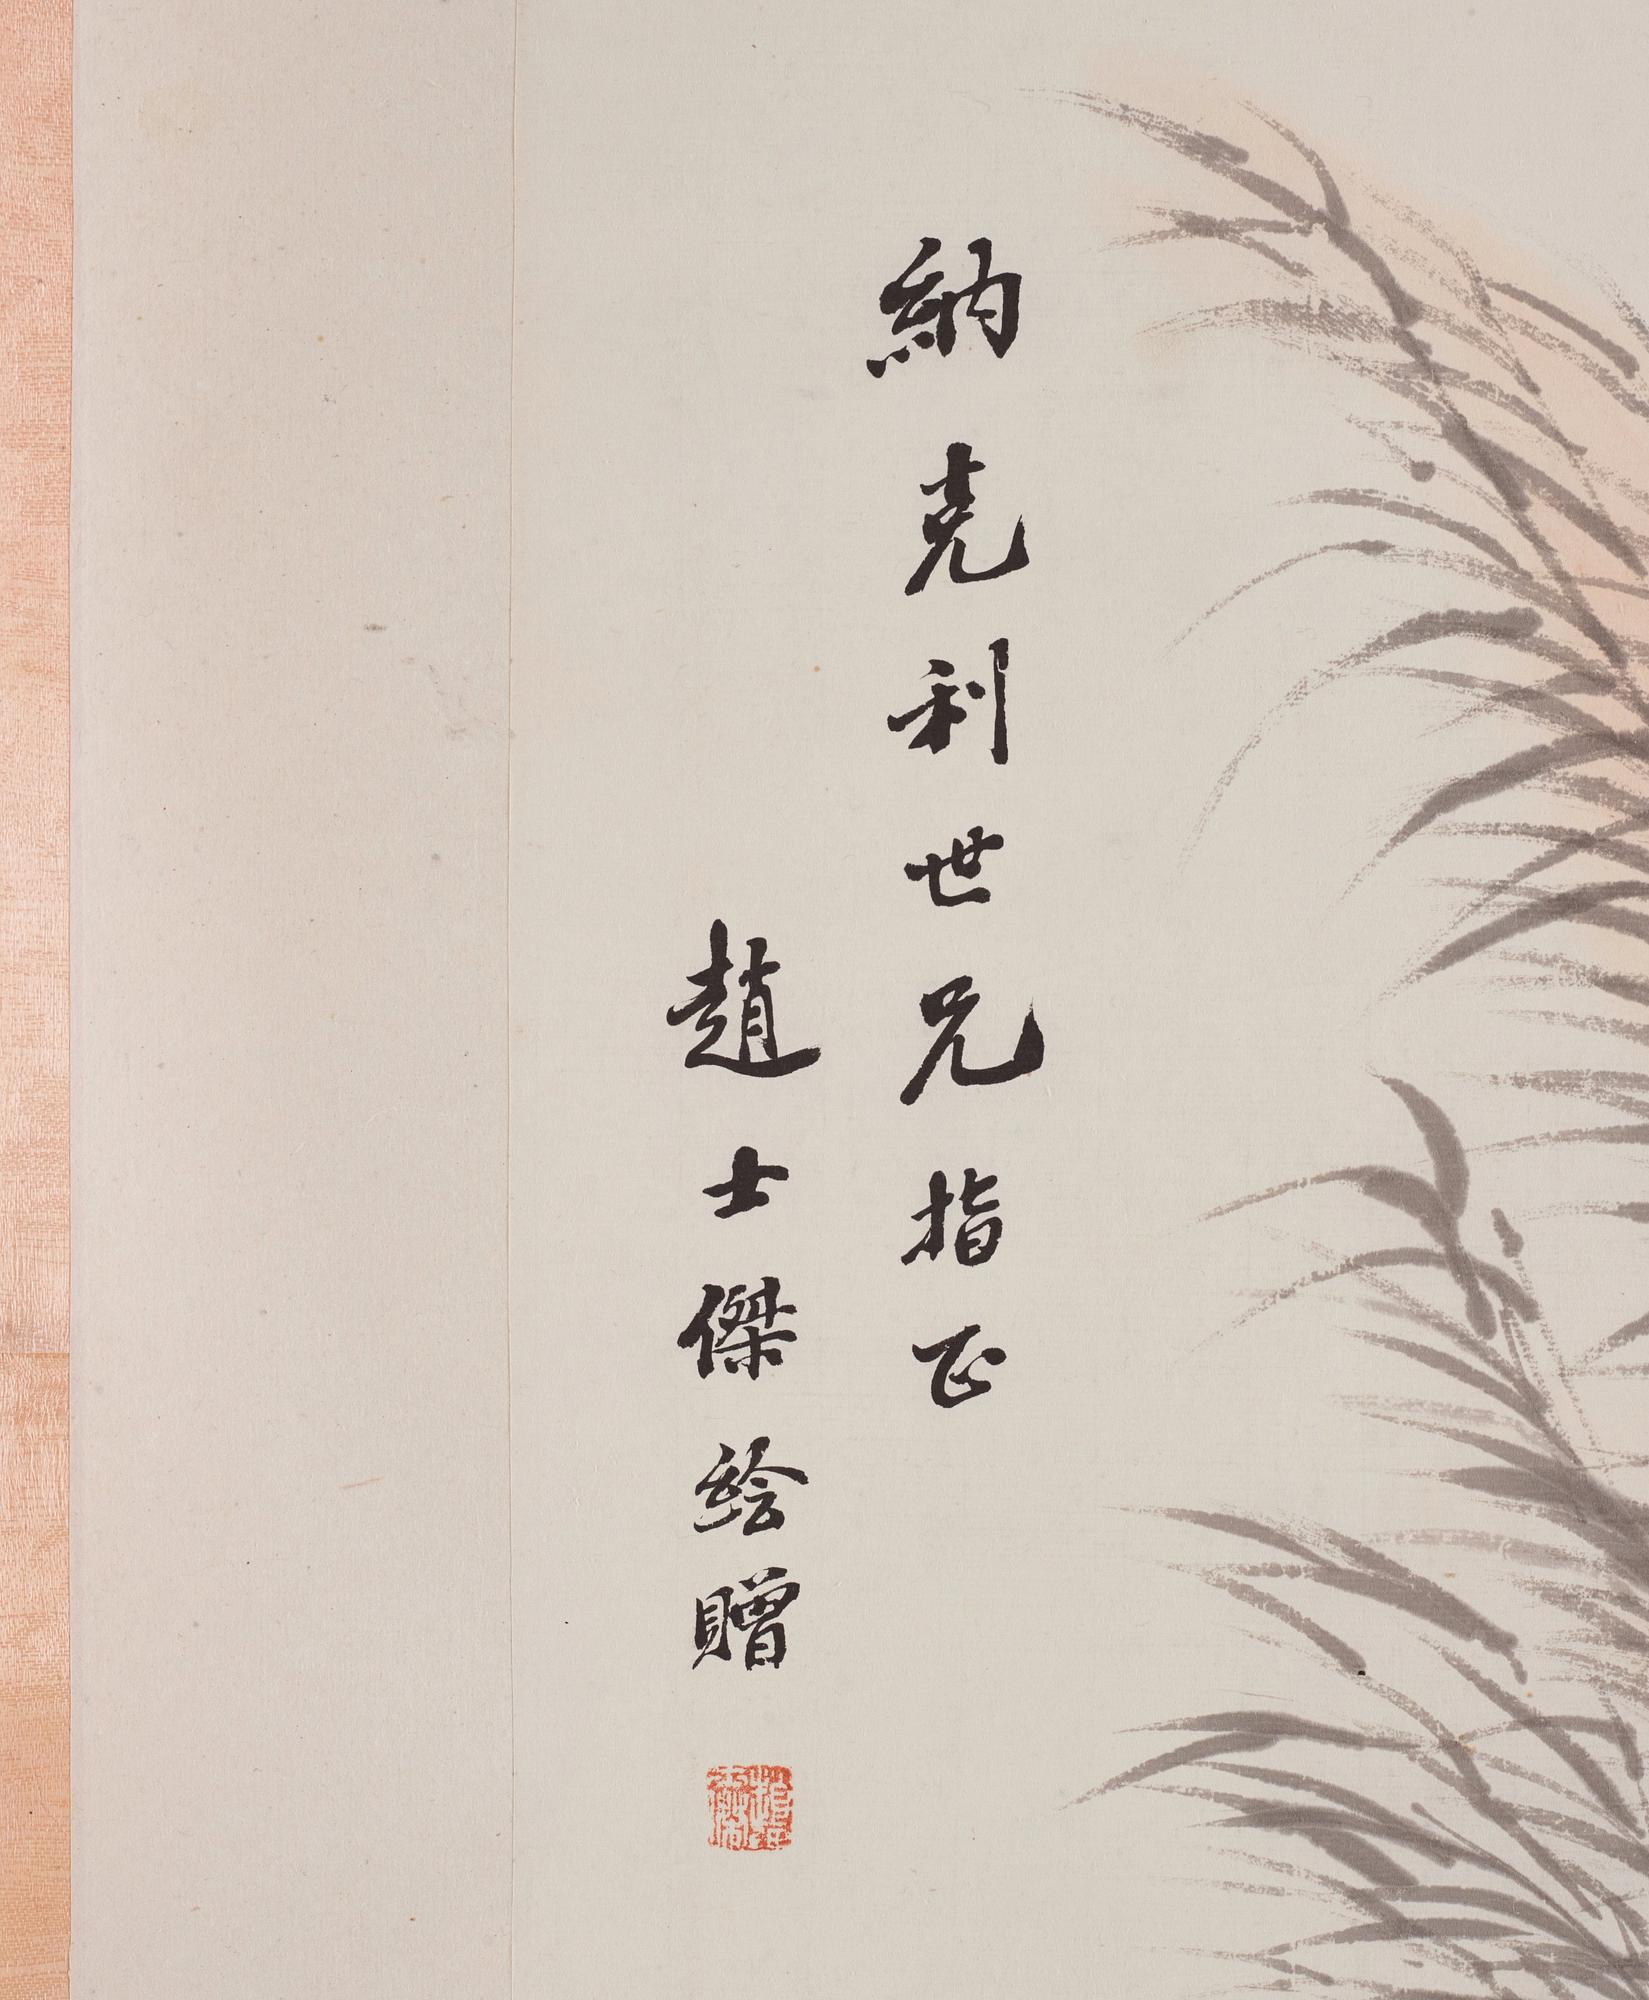 納克利世兄指正
趙士傑繪贈